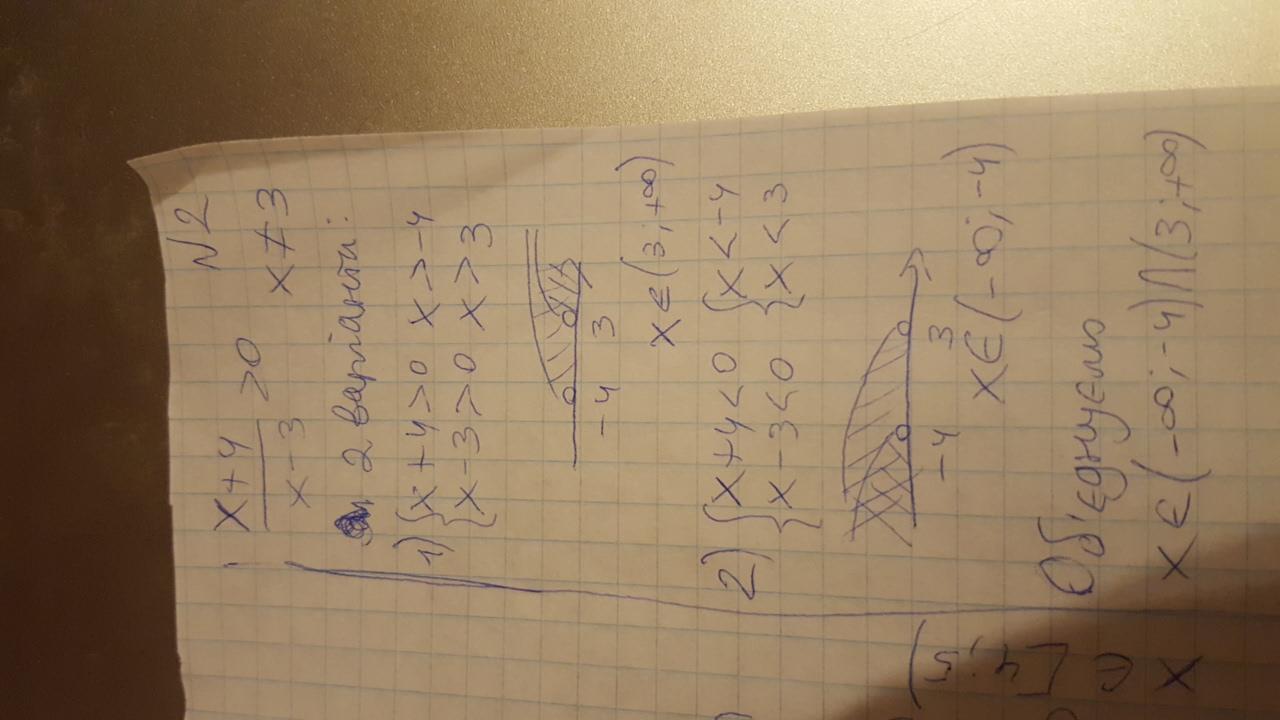 N2
x+4
x-3
>0 x≠3
2 варіанти:
1) { x+4>0 x>-4
{ x-3>0 x>3
-4 3
x∈(3;+∞)
2) { x+4<0 { x<-4
{ x-3<0 { x<3
-4 3
x∈(-∞;-4)
Об'єднуємо
x∈(-∞;-4)∩(3;+∞)
x∈[4;5)